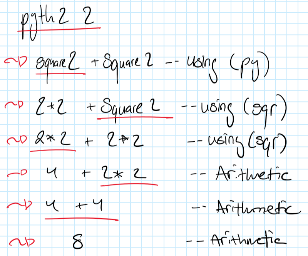 pyth2 2
~> square2 + Square 2 -- using (py)
~> 2*2 + Square 2 -- using (sqr)
~> 2*2 + 2*2 -- using (sqr)
~> 4 + 2*2 -- Arithmetic
~> 4 + 4 -- Arithmetic
~> 8 -- Arithmetic